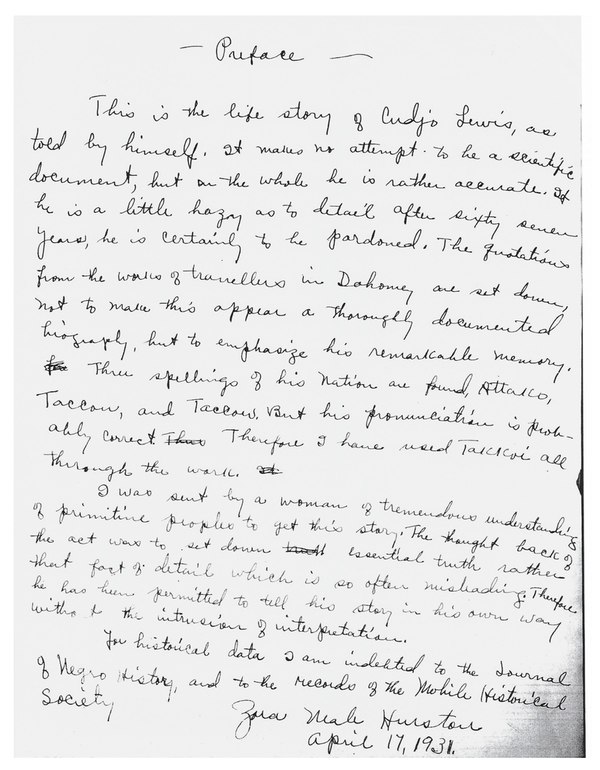 — Preface —
This is the life story of Cudjo Lewis, as
told by himself. It makes no attempt to be a scientific
document, but on the whole he is rather accurate. If
he is a little hazy as to detail after sixty seven
years, he is certainly to be pardoned. The quotations
from the works of travellers in Dahomey are set down,
not to make this appear a thoroughly documented
biography, but to emphasize his remarkable memory.
Three spellings of his nation are found, Attako,
Taccou, and Taccow. But his pronunciation is prob-
ably correct. Therefore I have used Takkoi all
through the work.
I was sent by a woman of tremendous understanding
of primitive peoples to get this story. The thought back of
the act was to set down essential truth rather
than fact of detail which is so often misleading. Therefore
he has been permitted to tell his story in his own way
without the intrusion of interpretation.
For historical data I am indebted to the Journal
of Negro History, and to the records of the Mobile Historical
Society
Zora Neale Hurston
April 17, 1931.